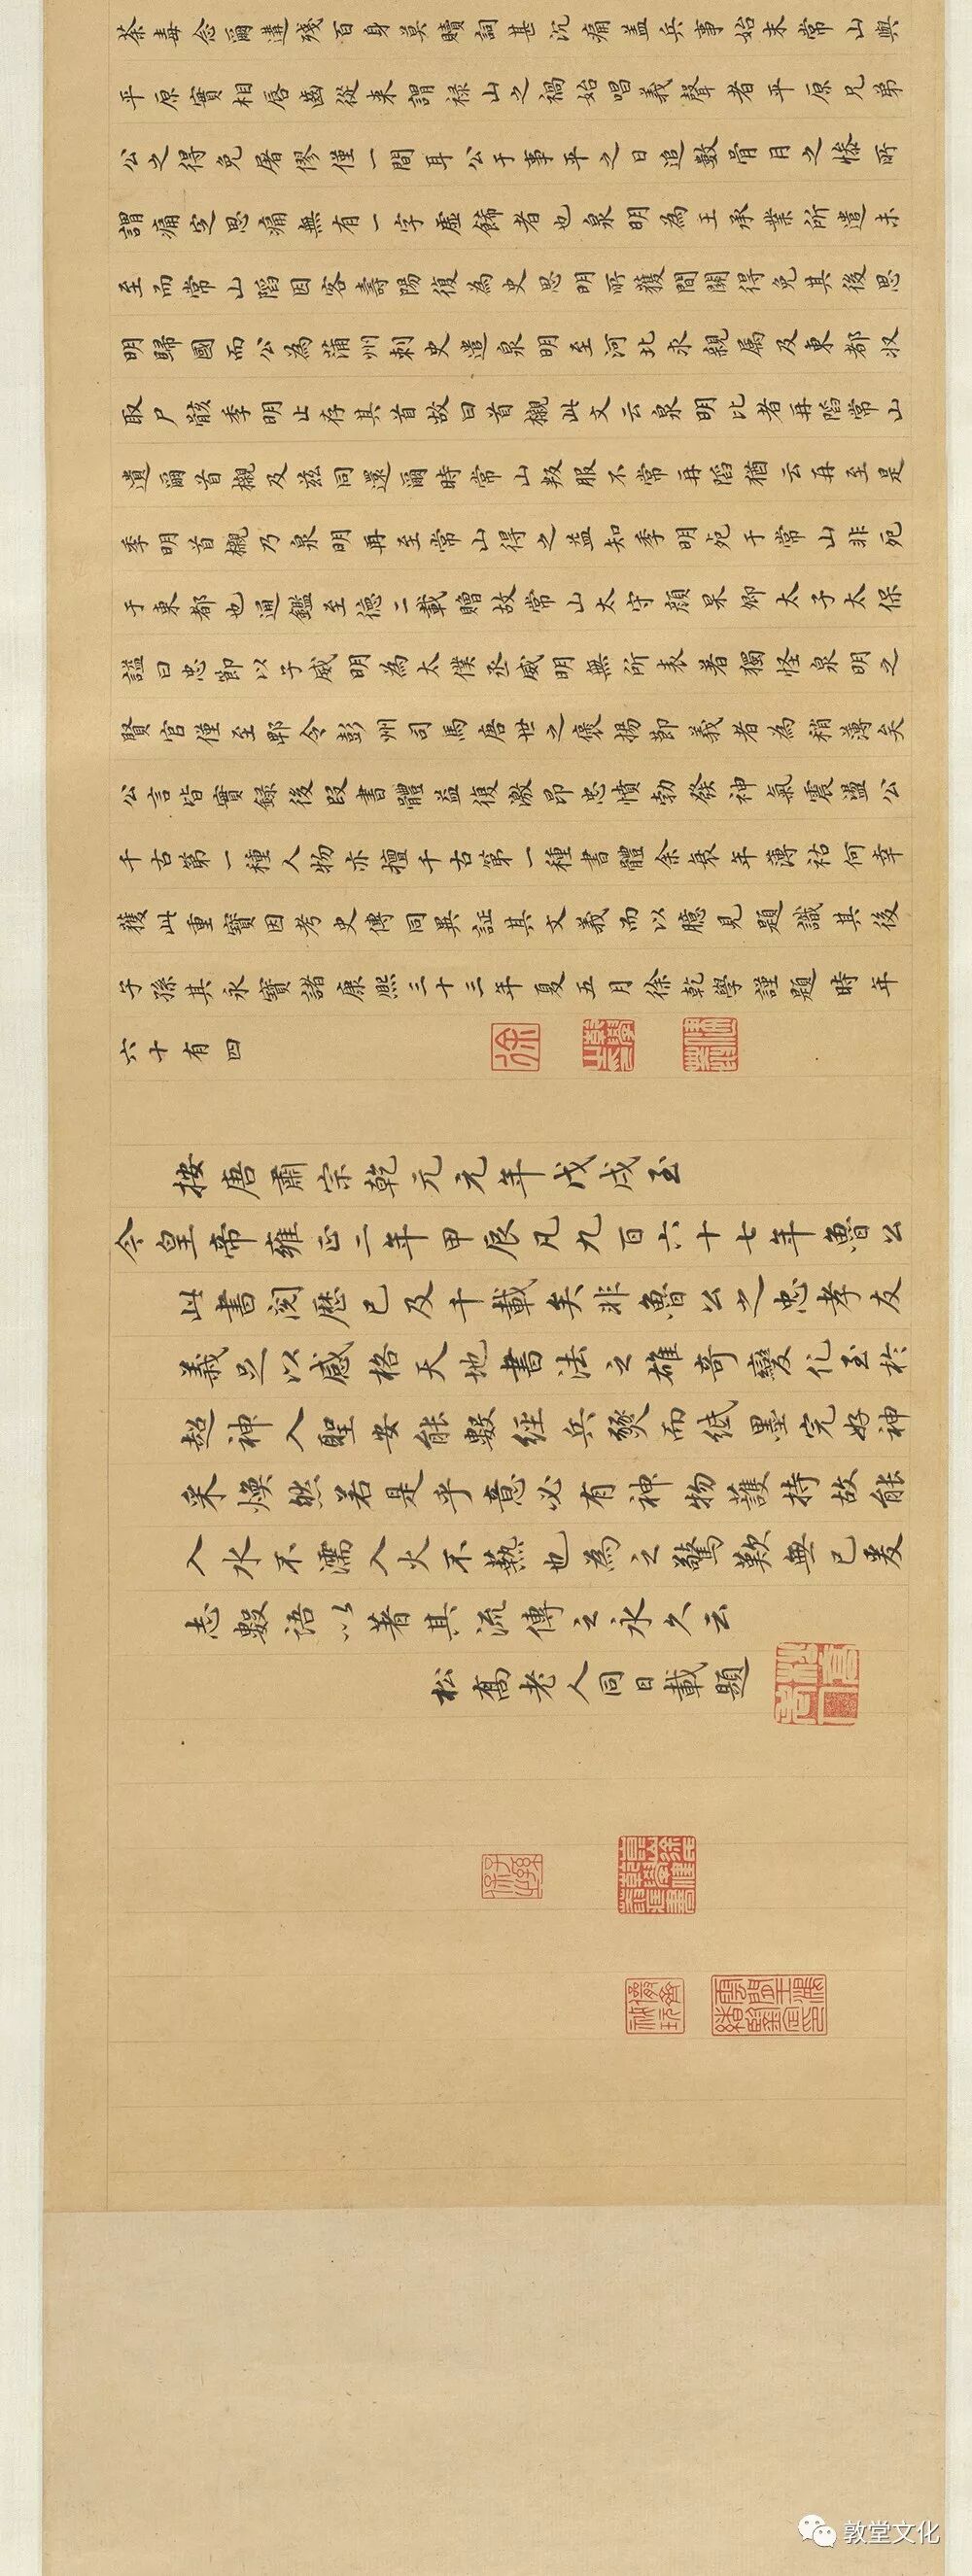 荼毒念爾遘殘百身莫贖詞甚沉痛盖兵事始末常山與
平原實相唇齒從来謂禄山之禍始唱義聲者平原兄弟
公之得免屠僇僅一間耳公于事平之日追數骨月之慘所
謂痛定思痛無有一字虛飾者也泉明為王承業所遣未
至而常山陷因客壽陽復為史思明所獲間關得免其後思
明歸國而公為蒲州刺史遣泉明至河北求親属及東都収
取尸骸季明止存其首故曰首櫬此文云泉明比者再陷常山
遺爾首櫬及兹同還爾時常山叛服不常再陷猶云再至是
季明首櫬乃泉明再至常山得之益知季明死于常山非死
于東都也通鑑至德二載贈故常山太守顔杲卿太子太保
謚曰忠節以子威明為太僕丞威明無所表著獨怪泉明之
賢官僅至郫令彭州司馬唐世之褒揚節義者為稍薄矣
公言皆實録後段書體益復激昂忠憤勃發神氣震盪公
千古第一種人物亦擅千古第一種書體余衰年薄祜何幸
獲此重寶因考史傳同異証其文義而以臆見題識其後
子孫其永寶諸康熙三十三年夏五月徐乾學謹題時年
六十有四
徐
按唐肅宗乾元元年戊戌至
今皇帝雍正二年甲辰凡九百六十七年魯公
此書閲歷已及千載矣非魯公之忠孝友
義足以感格天地書法之雄奇變化至於
超神入聖安能數經兵燹而紙墨完好神
采煥然若是乎意必有神物護持故能
入水不濡入火不爇也為之驚歎無已爰
志數語以著其流傳之永久云
松喬老人同日載題
敦堂文化